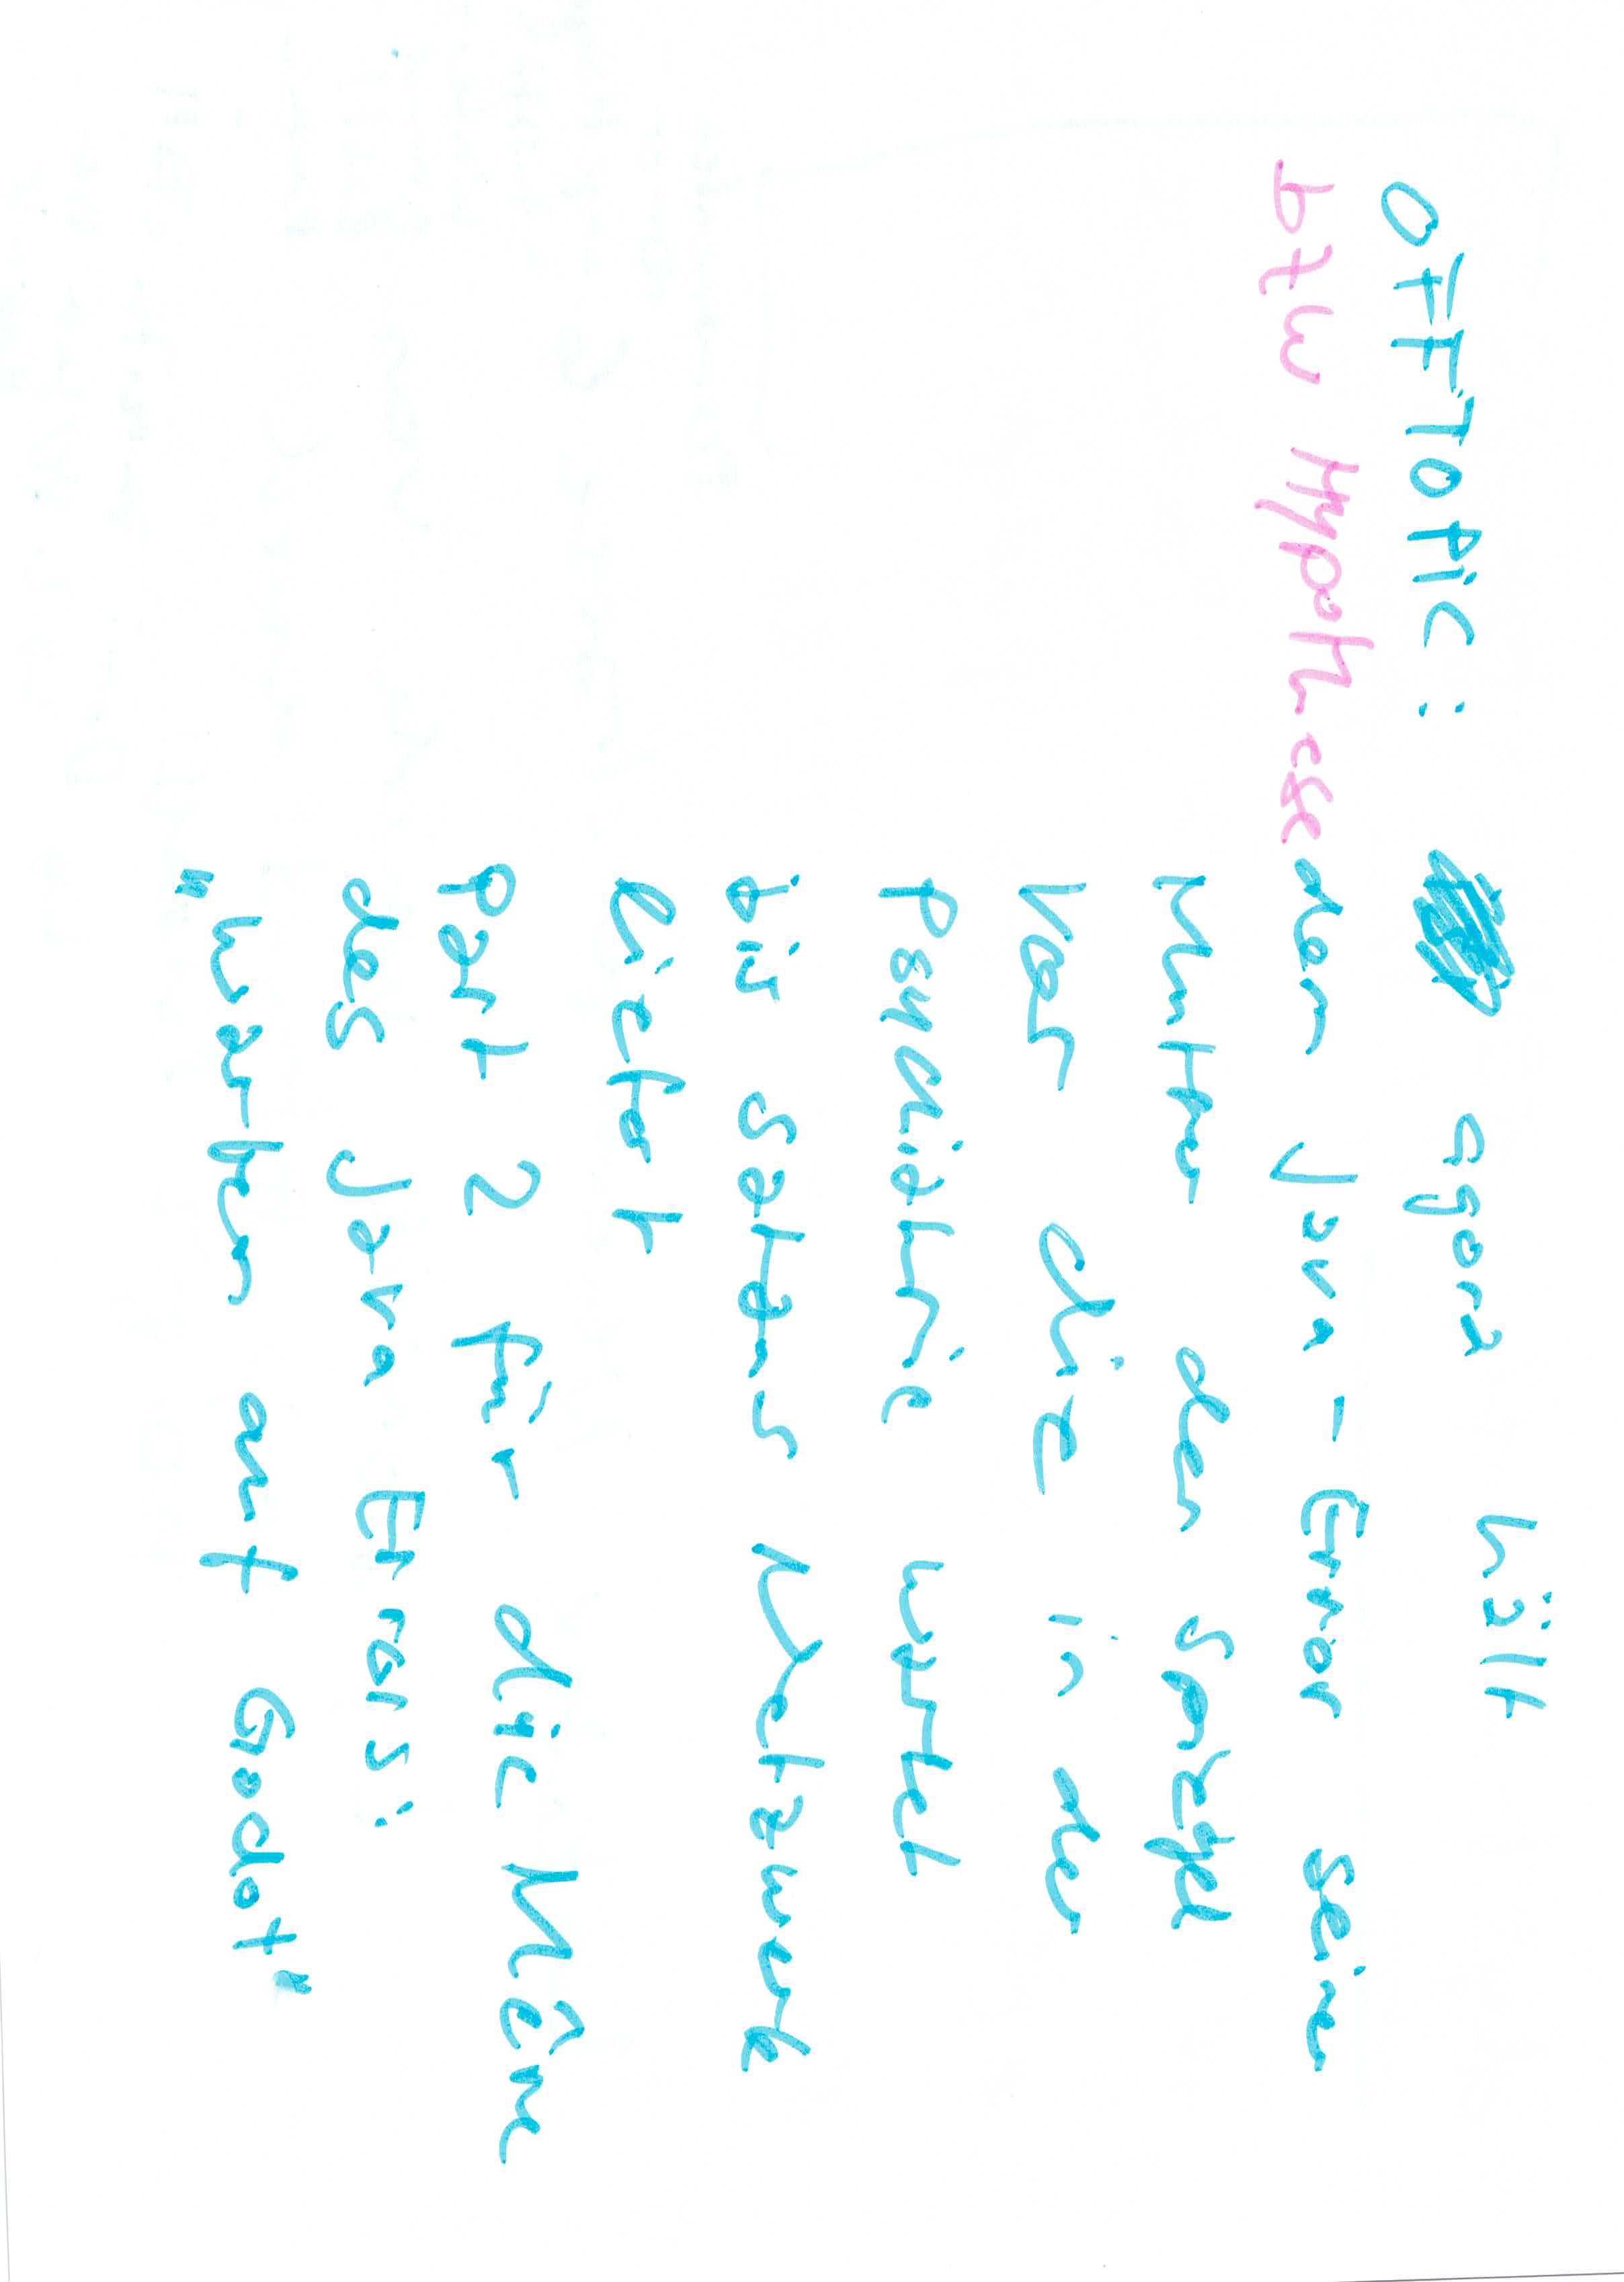 OFFTOPIC: Agora hält
btw Hypothese dem Java-Error seine
Mutter den Spiegel
Vor die in der
Psychiatrie wartet
bis Satans Netzwerk
liefert
Part 2 für die
des Java Errors:
„Warten auf Godot“